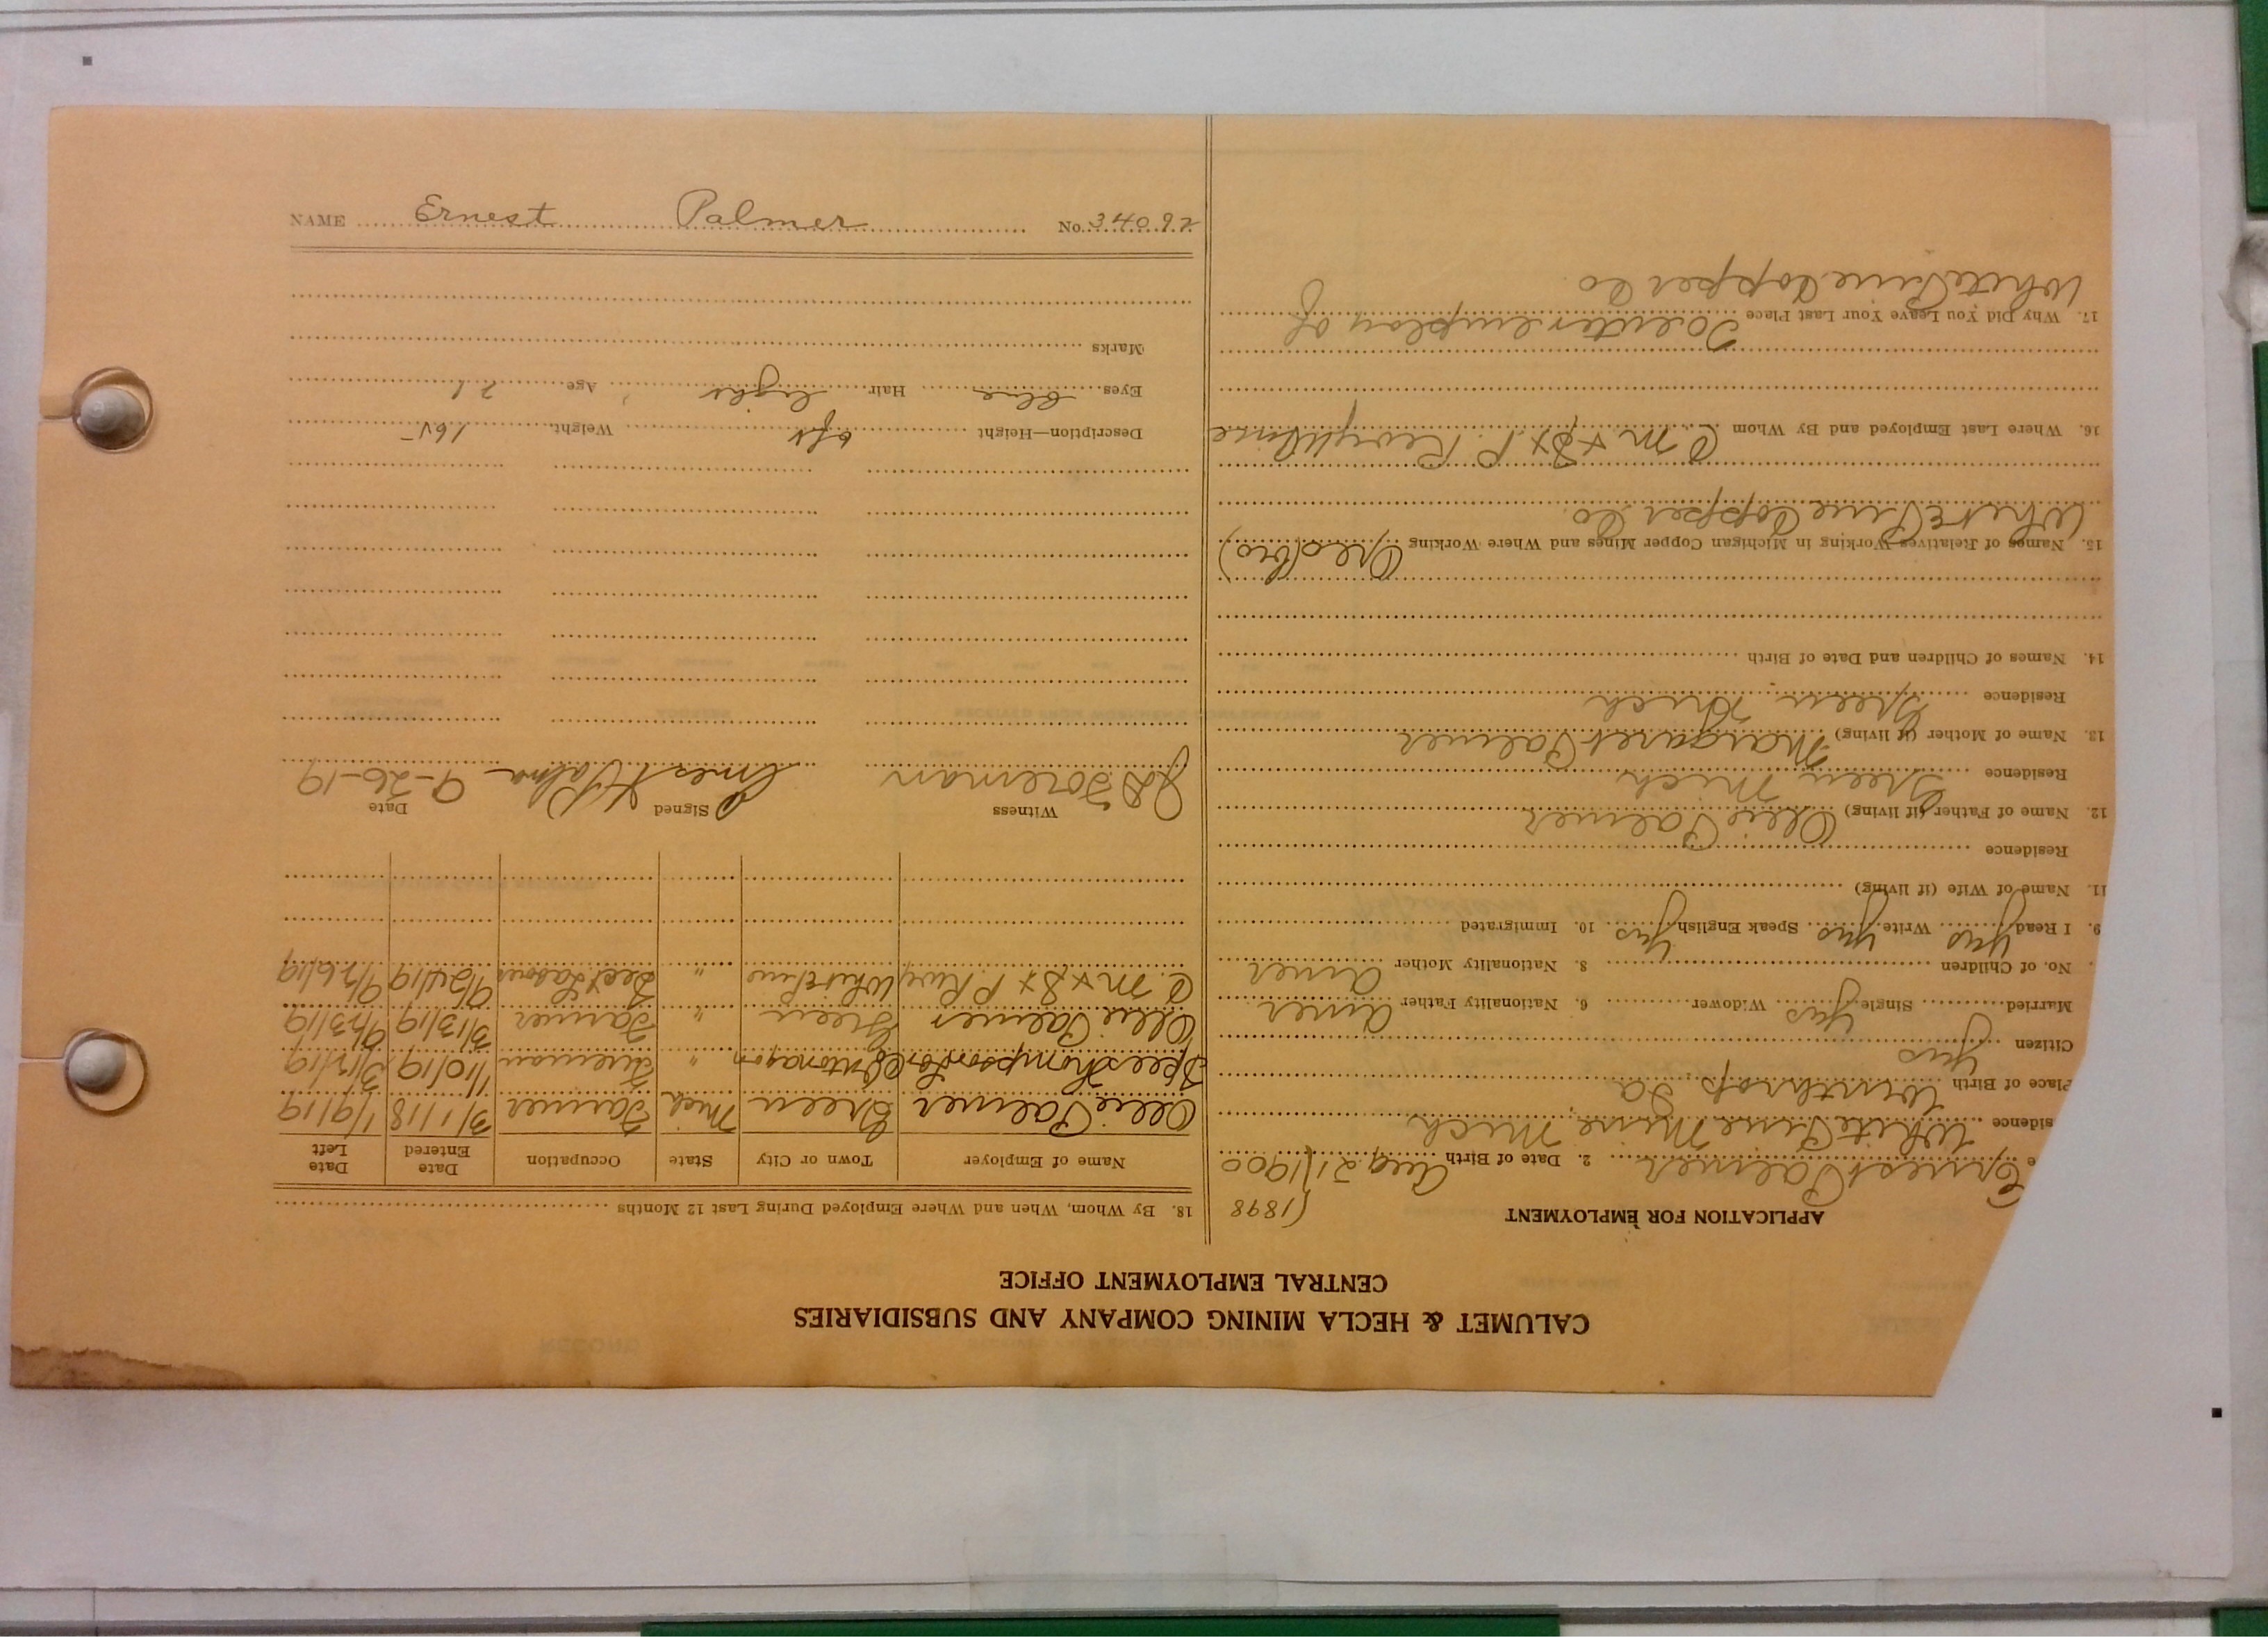 CALUMET & HECLA MINING COMPANY AND SUBSIDIARIES
CENTRAL EMPLOYMENT OFFICE
APPLICATION FOR EMPLOYMENT
(1898
e Ernest Palmer 2. Date of Birth Aug 21/1900
sidence White Pine Mine, Mich
Place of Birth Winthrop, Ia
Citizen Yes
Married Single Yes Widower 6. Nationality Father Amer
No. of Children 8. Nationality Mother Amer
9. I Read Yes Write Yes Speak English Yes 10. Immigrated
11. Name of Wife (if living)
Residence
12. Name of Father (if living) Ollie Palmer
Residence Green Mich
13. Name of Mother (if living) Margaret Palmer
Residence Green Mich
14. Names of Children and Date of Birth
15. Names of Relatives Working in Michigan Copper Mines and Where Working (bro)
White Pine Copper Co.
16. Where Last Employed and By Whom C M & St P.
17. Why Did You Leave Your Last Place To enter employ of
White Pine Copper Co
18. By Whom, When and Where Employed During Last 12 Months
Name of Employer Town or City State Occupation Date Entered Date Left
Ollie Palmer Green Mich Farmer 3/1/18 1/9/19
Thompson Ontonagon " Fireman 1/10/19 3/12/19
Ollie Palmer Green " Farmer 3/13/19 9/23/19
C. M & St P. White Pine " Sect Laborer 9/24/19 9/26/19
Witness Signed Date
Foreman Ernest Palmer 9-26-19
Description—Height 6 ft Weight 165
Eyes Blue Hair Light Age 21
Marks
NAME Ernest Palmer No. 34092